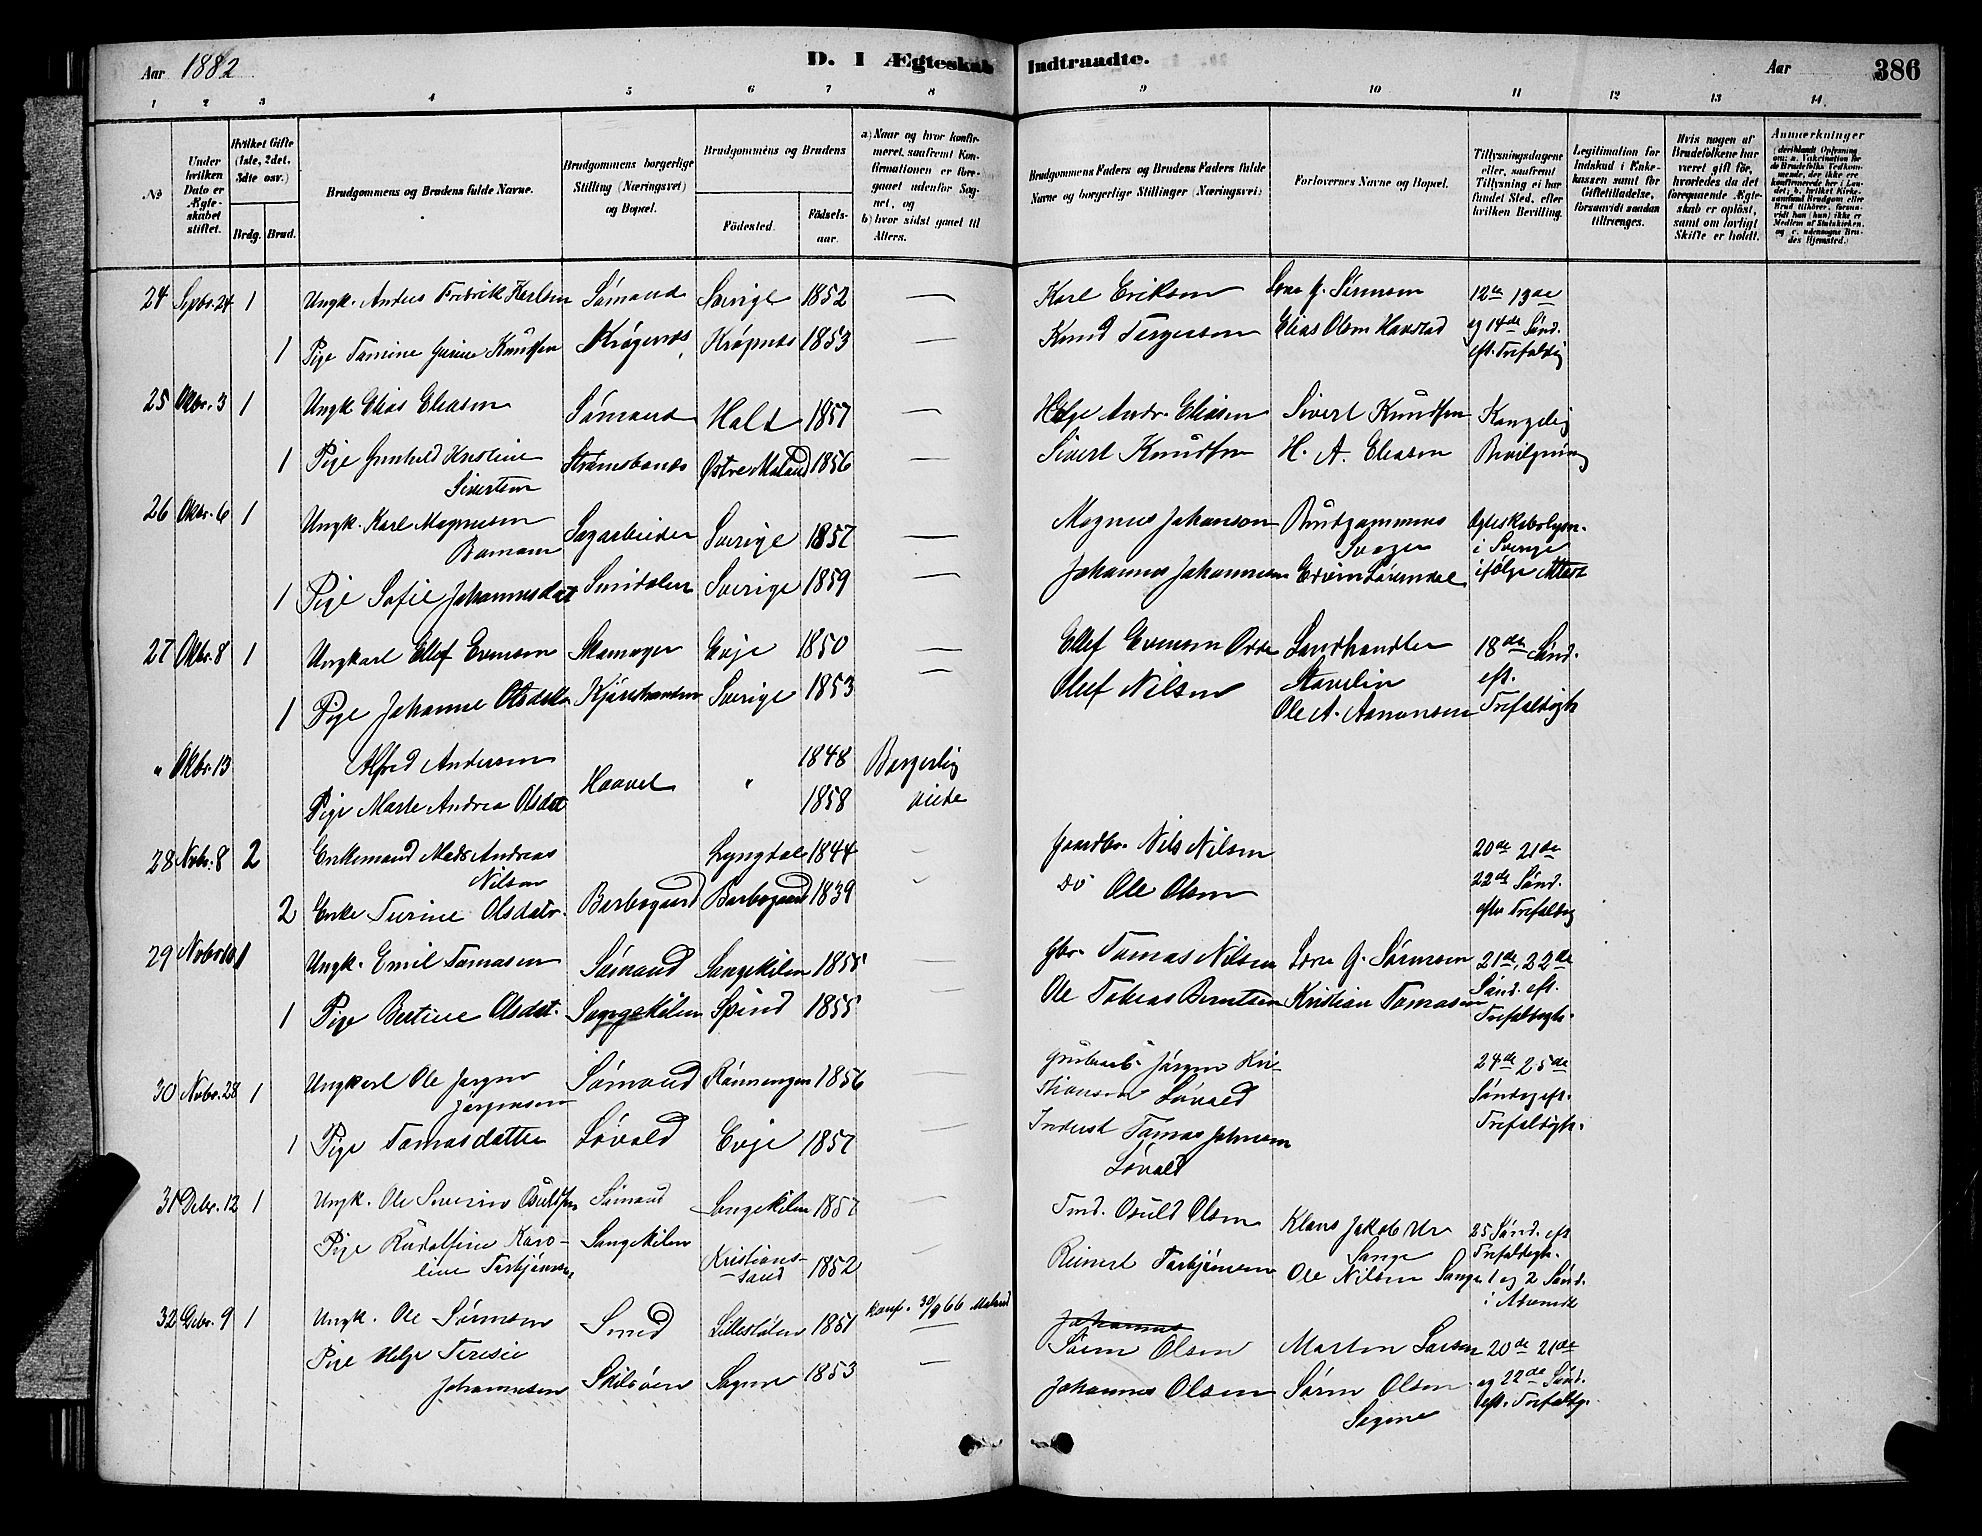 Aar 1882
D. I Ægteskab Indtraadte.
Aar
386
1 2 3 4 5 6 7 8 9 10 11 12 13 14
No
Under hvilken Dato er Ægteskabet stiftet.
Hvilket Gifte (1ste, 2det, 3dte osv.)
Brdg. Brud.
Brudgommens og Brudens fulde Navne.
Brudgommens borgerlige Stilling (Næringsvei) og Bopæl.
Brudgommens og Brudens
Födested.
Födselsaar.
a) Naar og hvor konfirmeret, saafremt Konfirmationen er foregaaet udenfor Sognet, og
b) hvor sidst gaaet til Alters.
Brudgommens Faders og Brudens Faders fulde Navne og borgerlige Stillinger (Næringsvei)
Forlovernes Navne og Bopæl.
Tillysningsdagene eller, saafremt Tillysning ei har fundet Sted, efter hvilken Bevilling.
Legitimation for Indskud i Enkekassen samt for Giftetilladelse, forsaavidt saadan tiltrænges.
Hvis nogen af Brudefolkene har været gift før, hvorledes da det foregaaende Ægteskab er oplöst, samt om lovligt Skifte er holdt.
Anmærkninger
24 Sepbr. 24 1 Ungk. Anders Fredrik Karlsen Sømand Sverige 1852 — Karl Eriksen Lars G. Sørensen 12te 13de
1 Pige Tamine Gurine Knudsen Krøgenes Krøgnes 1853 — Knud Tergersen Elias Olsen Havstad og 14de Sønd.
eft. Trefoldig
25 Okbr. 3 1 Ungk Elias Eliasen Sømand Holt 1857 — Helge Andr. Eliasen Sivert Knudsen Kongelig
1 Pige Gunhild Kristine Strømsbonæs Østre Moland 1856 — Sivert Knudsen H. A. Eliasen Bevilgning
Sivertsen
26 Okbr. 6 1 Ungk. Karl Magnusen Sagarbeider Sverige 1857 — Magnus Johanson Brudgommens
Svoger i Sverige
1 Pige Sofie Johannesdat Sverige 1859 — Johannes Johannesen ifølge Attest
27 Okbr. 8 1 Ungkarl Ellef Evensen Skomager Evje 1850 — Ellef Evensen Odde Landhandler 18de Sønd.
1 Pige Johanne Olsdatter Kjørestranden Sverige 1853 — Olef Nilsen Stavelin eft.
Ole A. Aanonsen Trefoldigh
" Okbr. 13 Alfred Andersen Haavet " 1848 Borgerlig
Pige Marte Andrea Olsdat 1858 viede
28 Nvbr. 8 2 Enkemand Mads Andreas Lyngdal 1844 Gaardbr. Nils Nilsen 20de 21de
Nilsen 22de Sønd.
2 Enke Turine Olsdatr. Barbogaard Barbogaard 1839 Do Ole Olsen efter Trefoldig
29 Nvbr 10 1 Ungk. Emil Tomasen Sømand Songekilen 1855 — Gbr. Tomas Nilsen Lars G. Sørensen 21de, 22de
Sønd. eft.
1 Pige Bertine Olsdat. Songekilen Spind 1855 — Ole Tobias Berntsen Kristian Tomasen Trefoldigh.
30 Nvbr. 28 1 Ungkarl Ole Jørgen Sømand Rønningen 1856 — Grubearb. Jørgen Kri- 24de 25de
Jørgensen thiansen Løvold Søndag eft.
1 Pige Tomasdatter Løvold Evje 1857 — Inderst Tomas Johnsen Trefoldigh.
Løvold
31 Debr. 12 1 Ungk. Ole Severin Osuldsen Sømand Songekilen 1857 — Ind. Osuld Olsen Klaus Jakob 25 Sønd. eft
Pige Rudolfine Karo- Songekilen Songe Trefoldigh.
line Torbjørnsen Kristians-
sand 1852 Reinert Torbjørnsen Ole Nilsen Songe 1 og 2 Sønd.
i Advendt
32 Debr. 9 1 Ungk. Ole Sørensen Smed Lillestølen 1851 Konf. 30/9 66 Moland Johannes
Søren Olsen Morten Larsen 20de 21de
Pige Helge Teresie og 22de Sønd.
Johannesen Skilsøen Sogne 1853 — Johannes Olsen Søren Olsen eft. Trefoldig.
Sogne